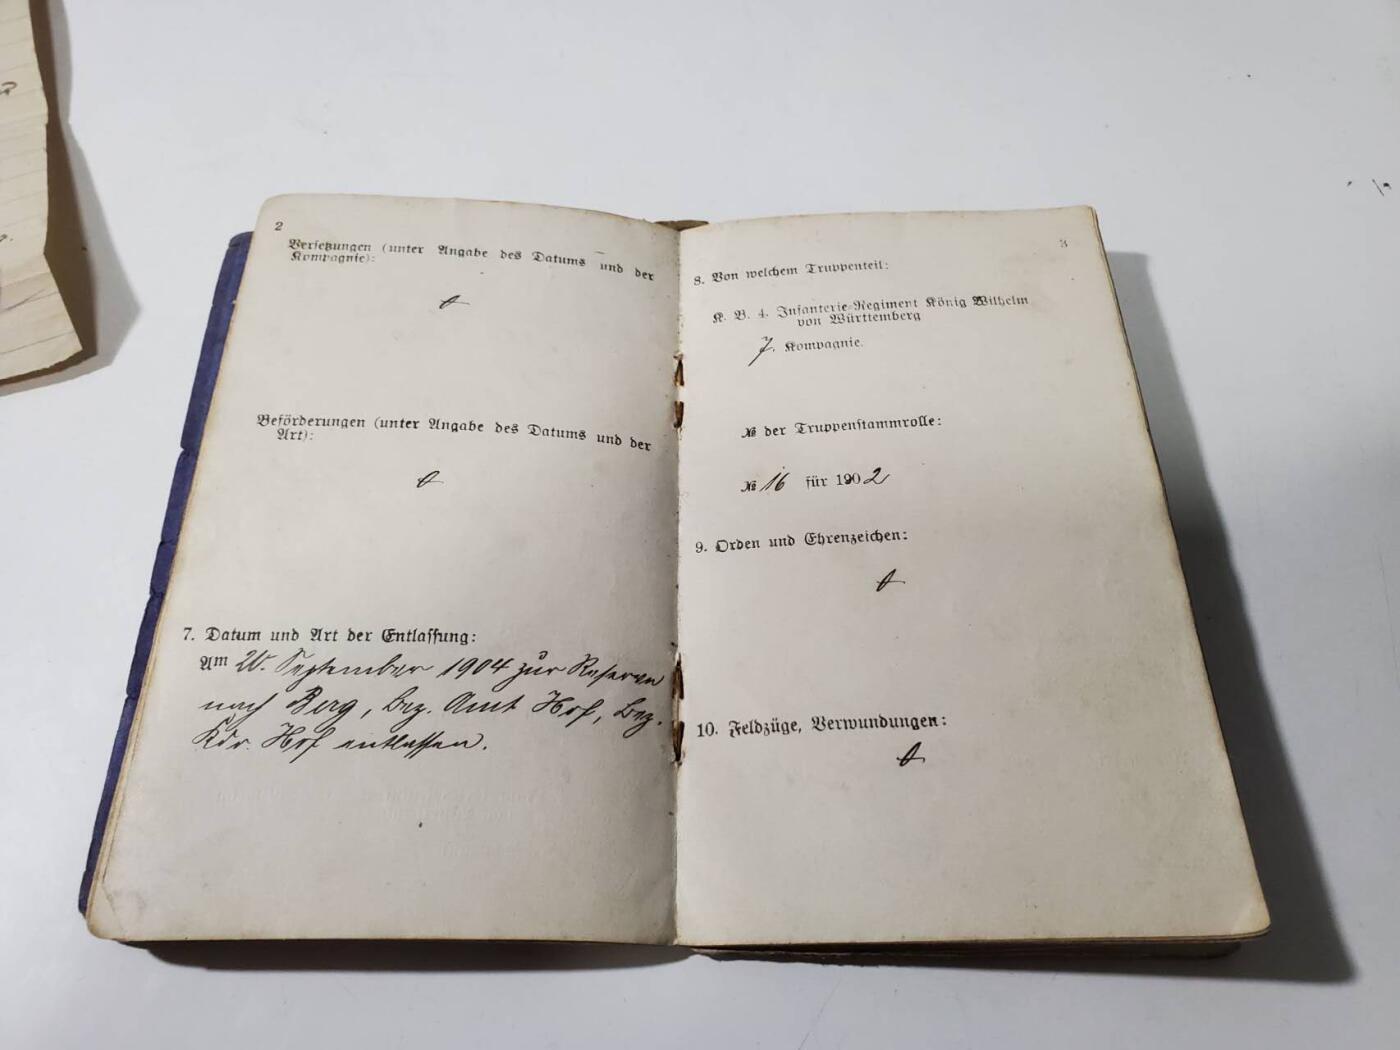 2
Versetzungen (unter Angabe des Datums und der
Kompagnie):
Beförderungen (unter Angabe des Datums und der
Art):
7. Datum und Art der Entlassung:
Am 20. September 1904 zur Reserve
nach Berg, Bez. Amt Hof, Bez.
Kdo. Hof entlassen.
3
8. Von welchem Truppenteil:
K. B. 4. Infanterie-Regiment König Wilhelm
von Württemberg
7. Kompagnie.
№ der Truppenstammrolle:
№ 16 für 1902
9. Orden und Ehrenzeichen:
10. Feldzüge, Verwundungen: